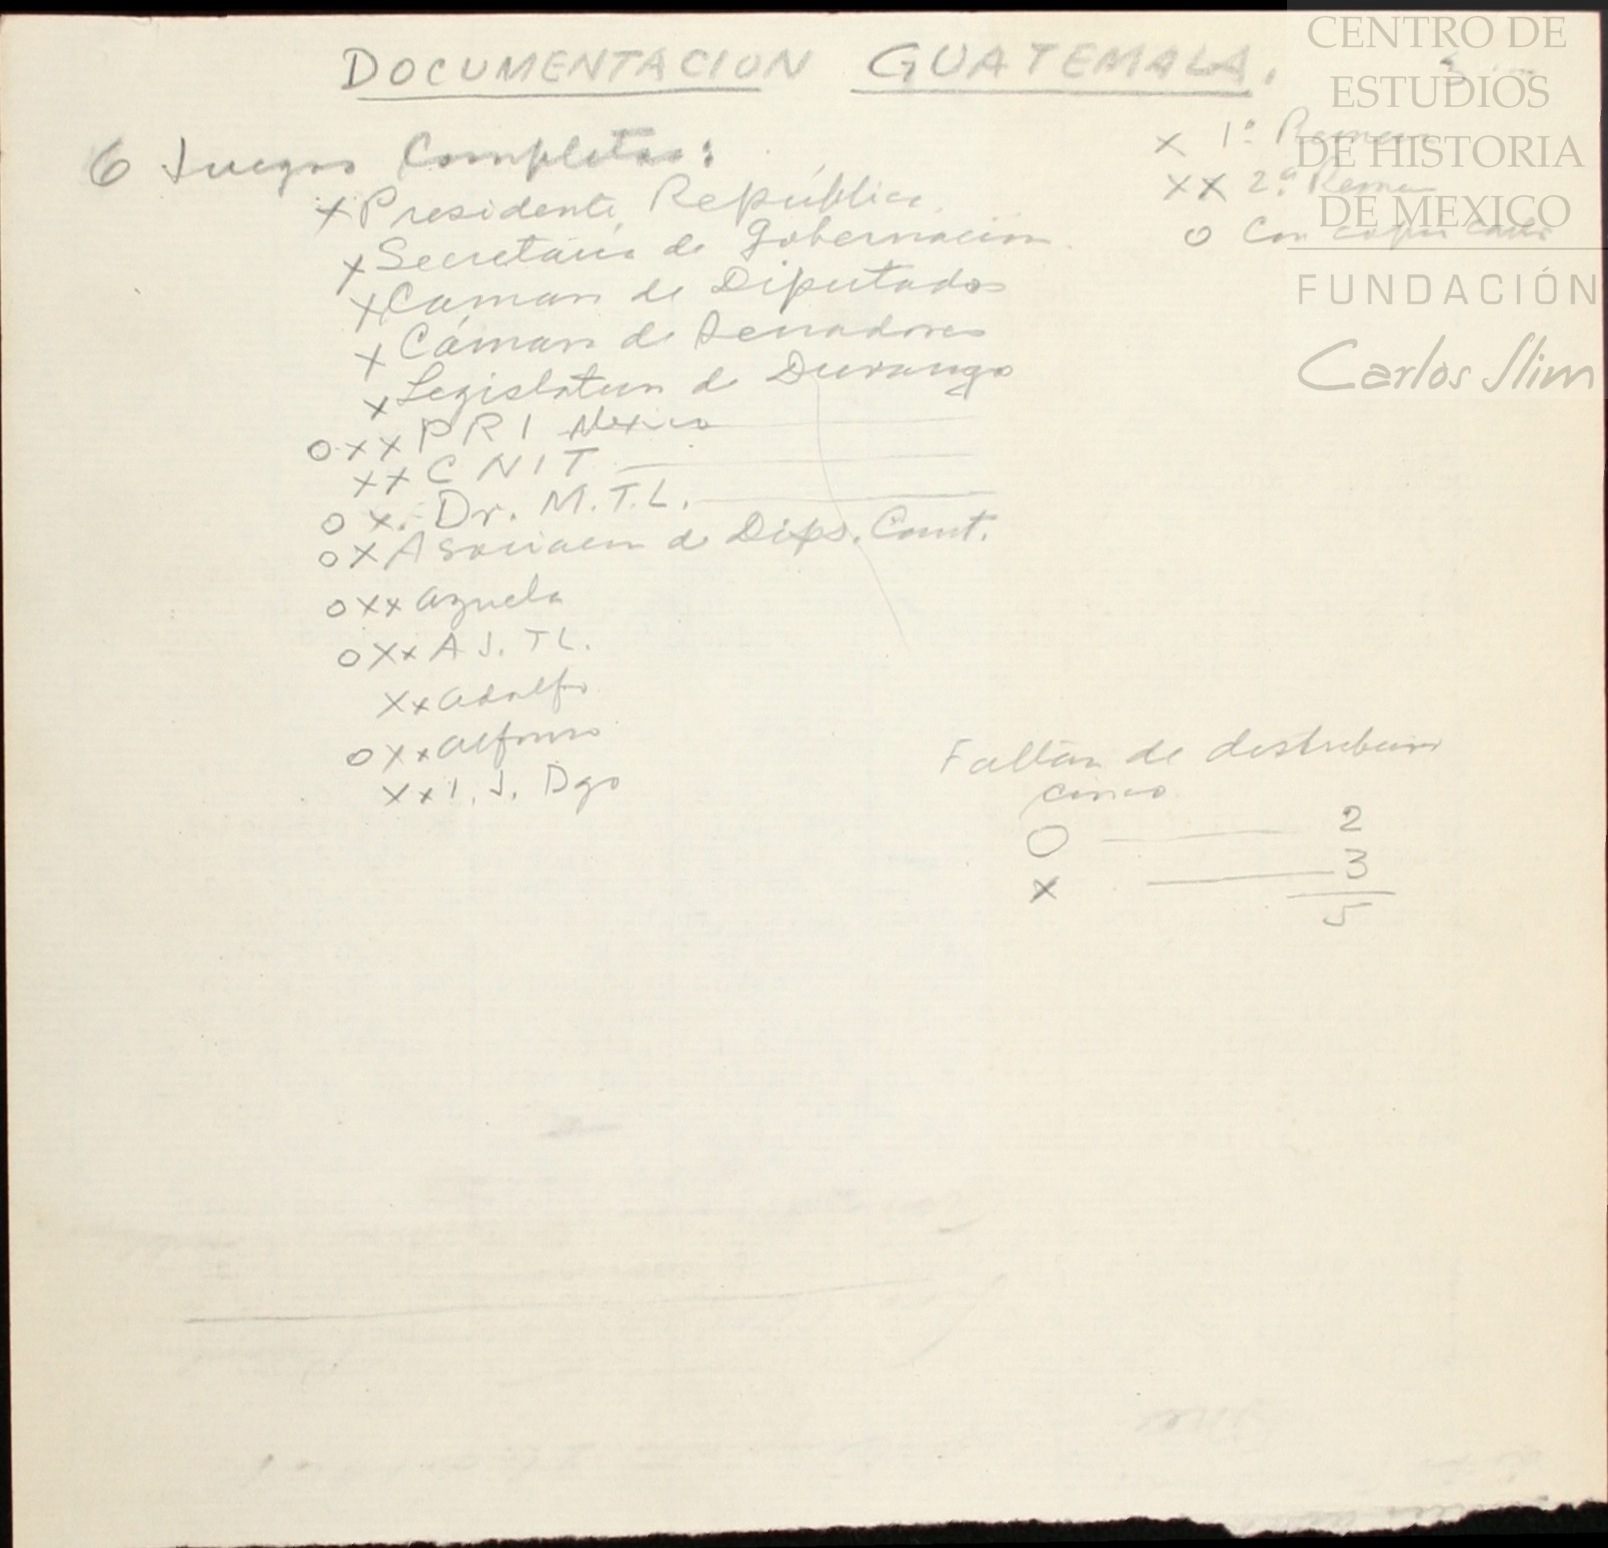 DOCUMENTACION GUATEMALA.
6 Juegos Completos:
x 1ª Remesa
xx 2ª Remesa
o Con copia carta
x Presidente República.
x Secretaría de Gobernación.
x Camara de Diputados
x Cámara de Senadores
x Legislatura de Durango
o xx PRI Mexico
xx CNIT
o x. Dr. M.T.L.
o x Asociacion de Dips. Const.
o xx Azuela
o xx A J. TL.
xx Adolfo
o xx Alfonso
xx I. J. Dgo
Faltan de distribuir
cinco
O 2
x 3
5
CENTRO DE
ESTUDIOS
DE HISTORIA
DE MEXICO
FUNDACIÓN
Carlos Slim